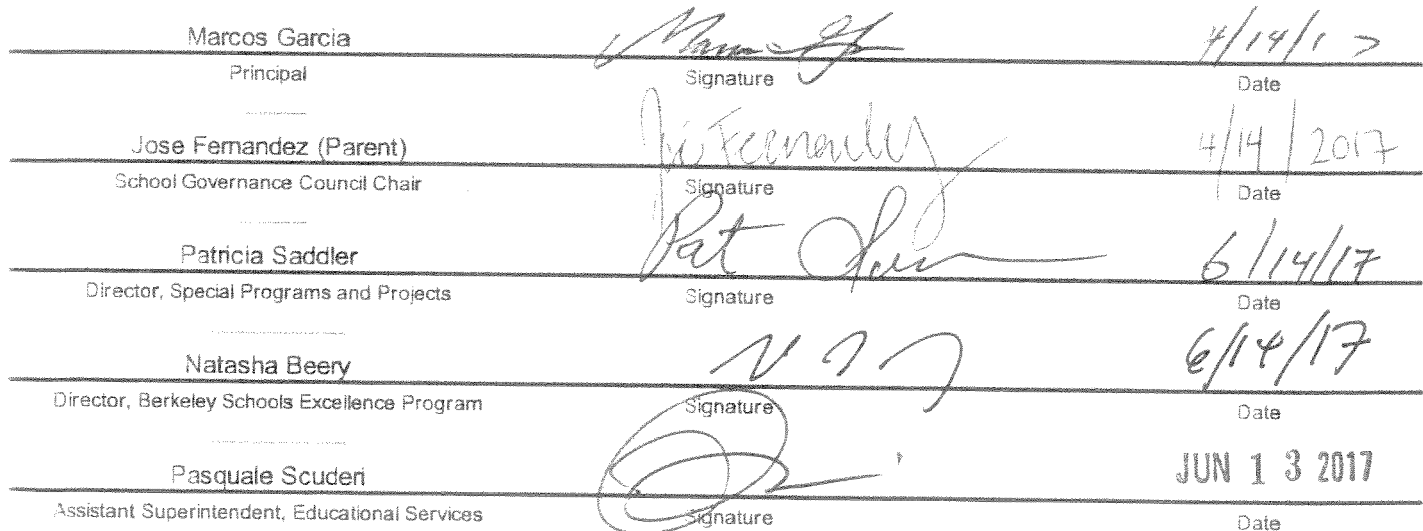 Marcos Garcia 4/14/17
Principal Signature Date
Jose Fernandez (Parent) Jose Fernandez 4/14/2017
School Governance Council Chair Signature Date
Patricia Saddler Pat 6/14/17
Director, Special Programs and Projects Signature Date
Natasha Beery 6/14/17
Director, Berkeley Schools Excellence Program Signature Date
Pasquale Scuderi JUN 13 2017
Assistant Superintendent, Educational Services Signature Date